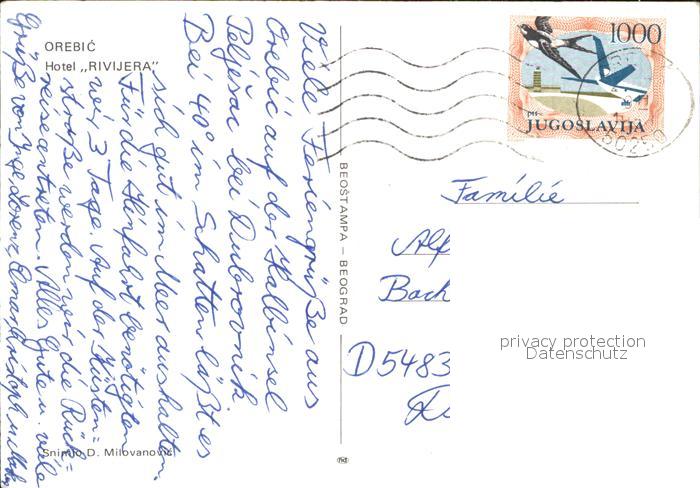 OREBIĆ
Hotel „RIVIJERA”
Viele Feriengrüße aus
Orebić auf der Halbinsel
Pelješac bei Dubrovnik
Bei 40° im Schatten läßt es
sich gut im Meer aushalten.
Für die Hinfahrt benötigten
wir 3 Tage. Auf der Küsten=
straße werden wir die Rück=
reise antreten. Alles Gute u. viele
Grüße von Inge Lorenz,
Snimio D. Milovanović
BEOŠTAMPA – BEOGRAD
1000
JUGOSLAVIJA
50250
Familie
Alf
Bach
D 5483
privacy protection
Datenschutz